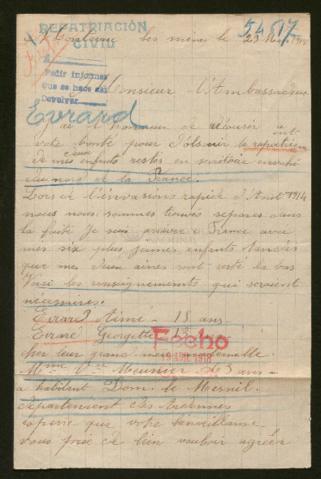 REPATRIACIÓN
CIVIL
54517
les mines le 23
Pedir informes
que se hace del
Devolver
Monsieur l'Ambassadeur
Evrard
J'ai l'honneur de recourir a
votre bonté pour obtenir le rapatriement
de mes enfants restés en territoire envahi
du nord de la France.
Lors de l'évacuation rapide d'Aout 1914
nous nous sommes trouvés séparés dans
la fuite Je suis arrivée en France avec
mes six plus jeunes enfants tandis
que mes deux ainés sont resté la bas
Voici les renseignements qui seraient
nécessaires.
Evrard Aimé 18 ans
Evrard Georgette
chez leur grand maternelle
Mme Vve Meunier ans
habitant Dom-le-Mesnil
département des Ardennes
Hecho
1918
J'espère que votre bienveillance
vous prie de bien vouloir agréer